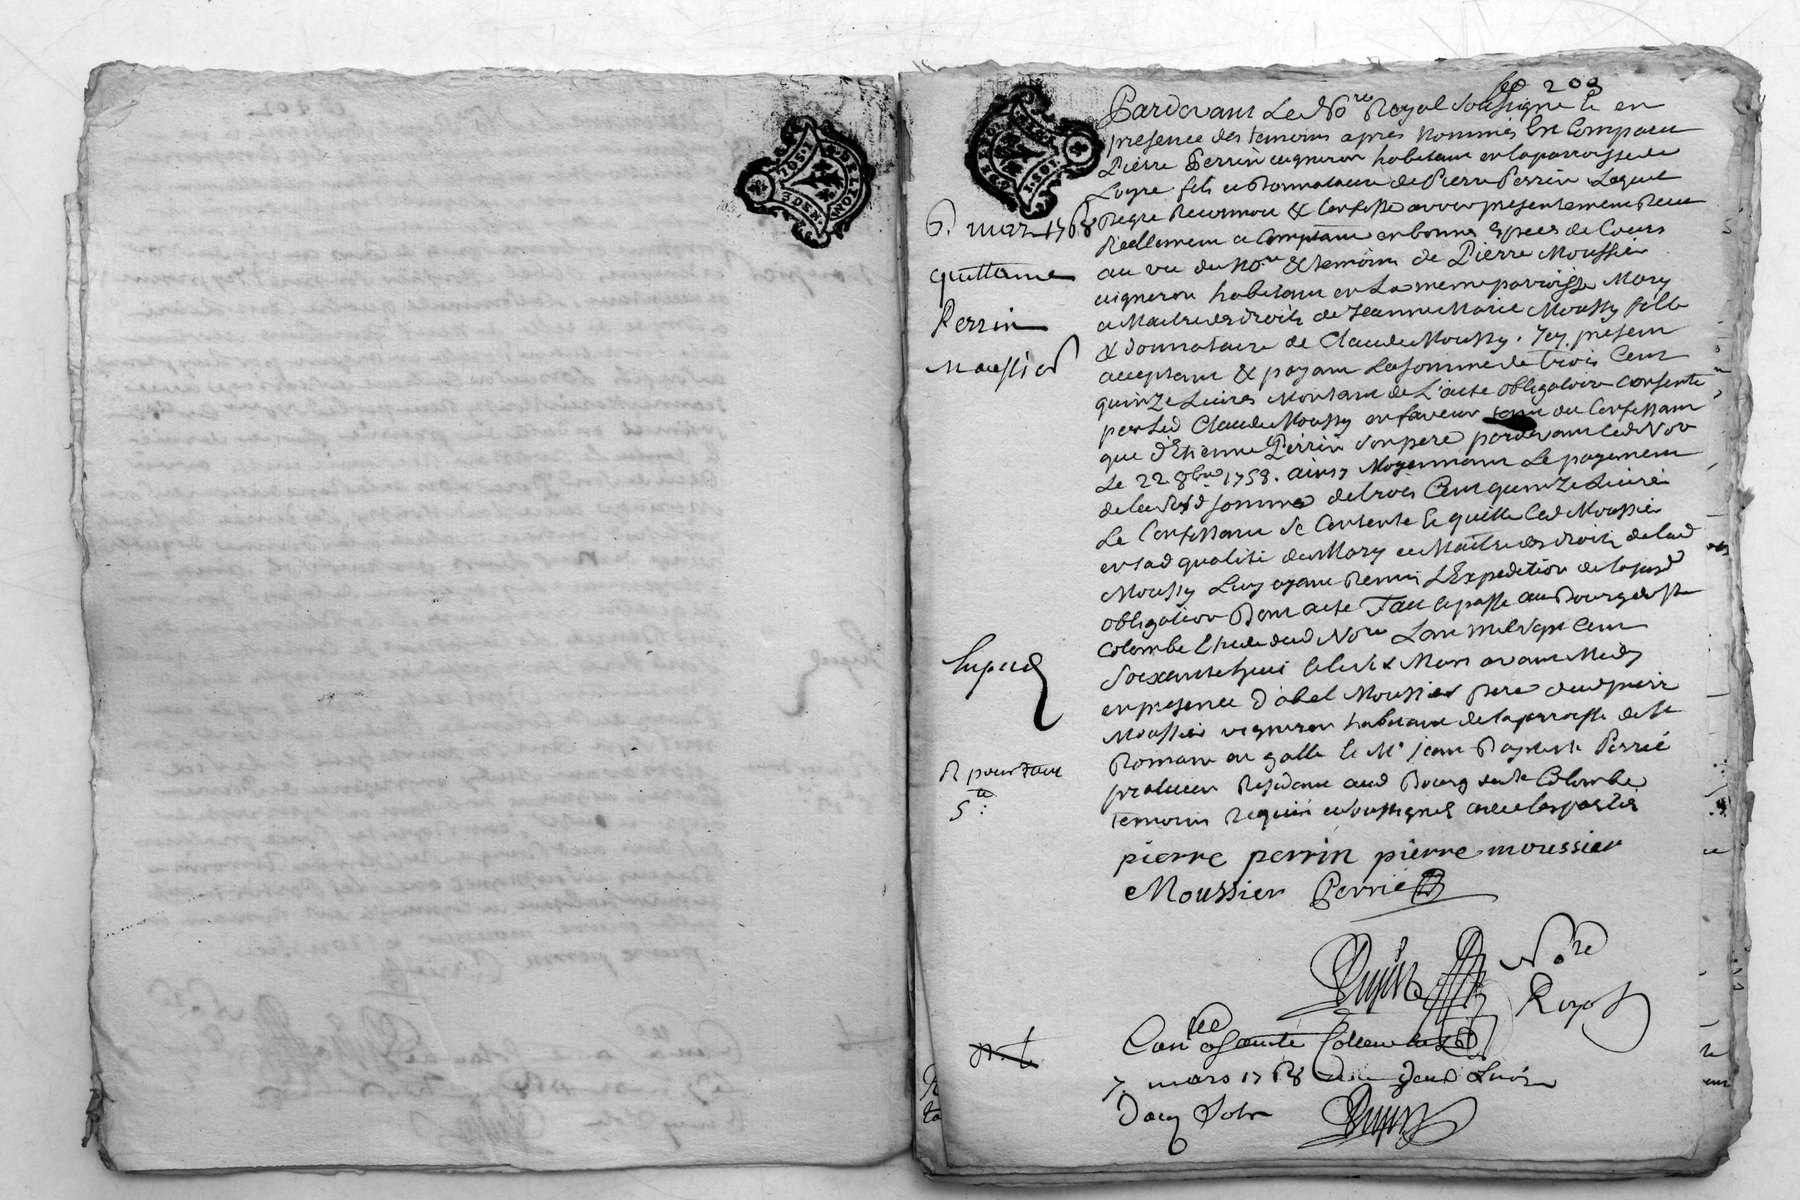 203
Pardevant Le No.re Royal Soussigné & en
presence des temoins après nommés En Comparu
Pierre Perrin vigneron habitant en la parroisse de
Loyre fils et Donnataire de Pierre Perrin Lequel
De gré Reconnoit & Confesse avoir presentement Receu
Reellement et Comptant en bonnes Especes de Cours
au vu du No.re & temoins de Pierre Moussier
vigneron habitant en La meme parroisse Mary
et Maitre des droits de Jeanne Marie Moussy fille
& donnataire de Claude Moussy . Icy present
acceptant & payant La somme de trois Cent
quinze Livres Montant de L'acte obligatoire Consenti
par Led Claude Moussy en faveur tant du Confessant
que d'Etienne Perrin son pere pardevant Led No.re
Le 22 8bre 1758. ainsy Moyennant Le payement
de lad somme de trois Cent quinze Livres
Le Confessant se Contente & quitte Led Moussier
en sad qualité de Mary et Maitre des droits de lad
Moussy Luy ayant Remis L'Expedition de la susd
obligation Dont acte Fait & passé au Bourg de Ste
Colombe Etude dud No.re L'an mil sept Cent
Soixante huit & le six Mars avant Midy
en presence d'abel Moussier pere dud pierre
Moussier vigneron habitant de la parroisse de St
Romain en galle & Mr jean Baptiste Perrié
praticien Residant aud Bourg de Ste Colombe
temoins Requis et soussignés avec les parties
pierre perrin pierre moussier
Moussier Perrié
No.re
Royal
Con.lé a Sainte Colombe
7 mars 1768 Livre
Sols
6. mars 1768
quittance
Perrin
Moussier
Expedié
R pour Taut
5.
1 SOL
3 DEN